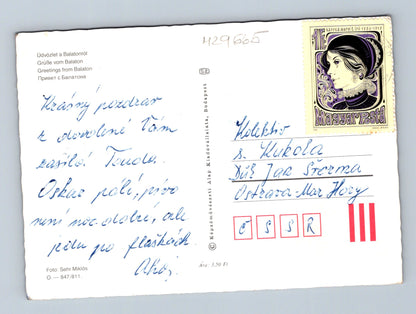 Üdvözlet a Balatonról
Grüße vom Balaton
Greetings from Balaton
Привет с Балатона
429665
Krásný pozdrav
z dovolené Vám
zasílá Tonda.
Oskar pálí, pivo
není moc dobré, ale
jedu po flaškách
Ahoj
Foto: Sehr Miklós
© Képzőművészeti Alap Kiadóvállalata, Budapest
Ára: 1,50 Ft
1Ft
Magyar Posta
Kolektiv
s. Kukola
Důl Jan Šverma
Ostrava-Mar. Hory
Č S S R